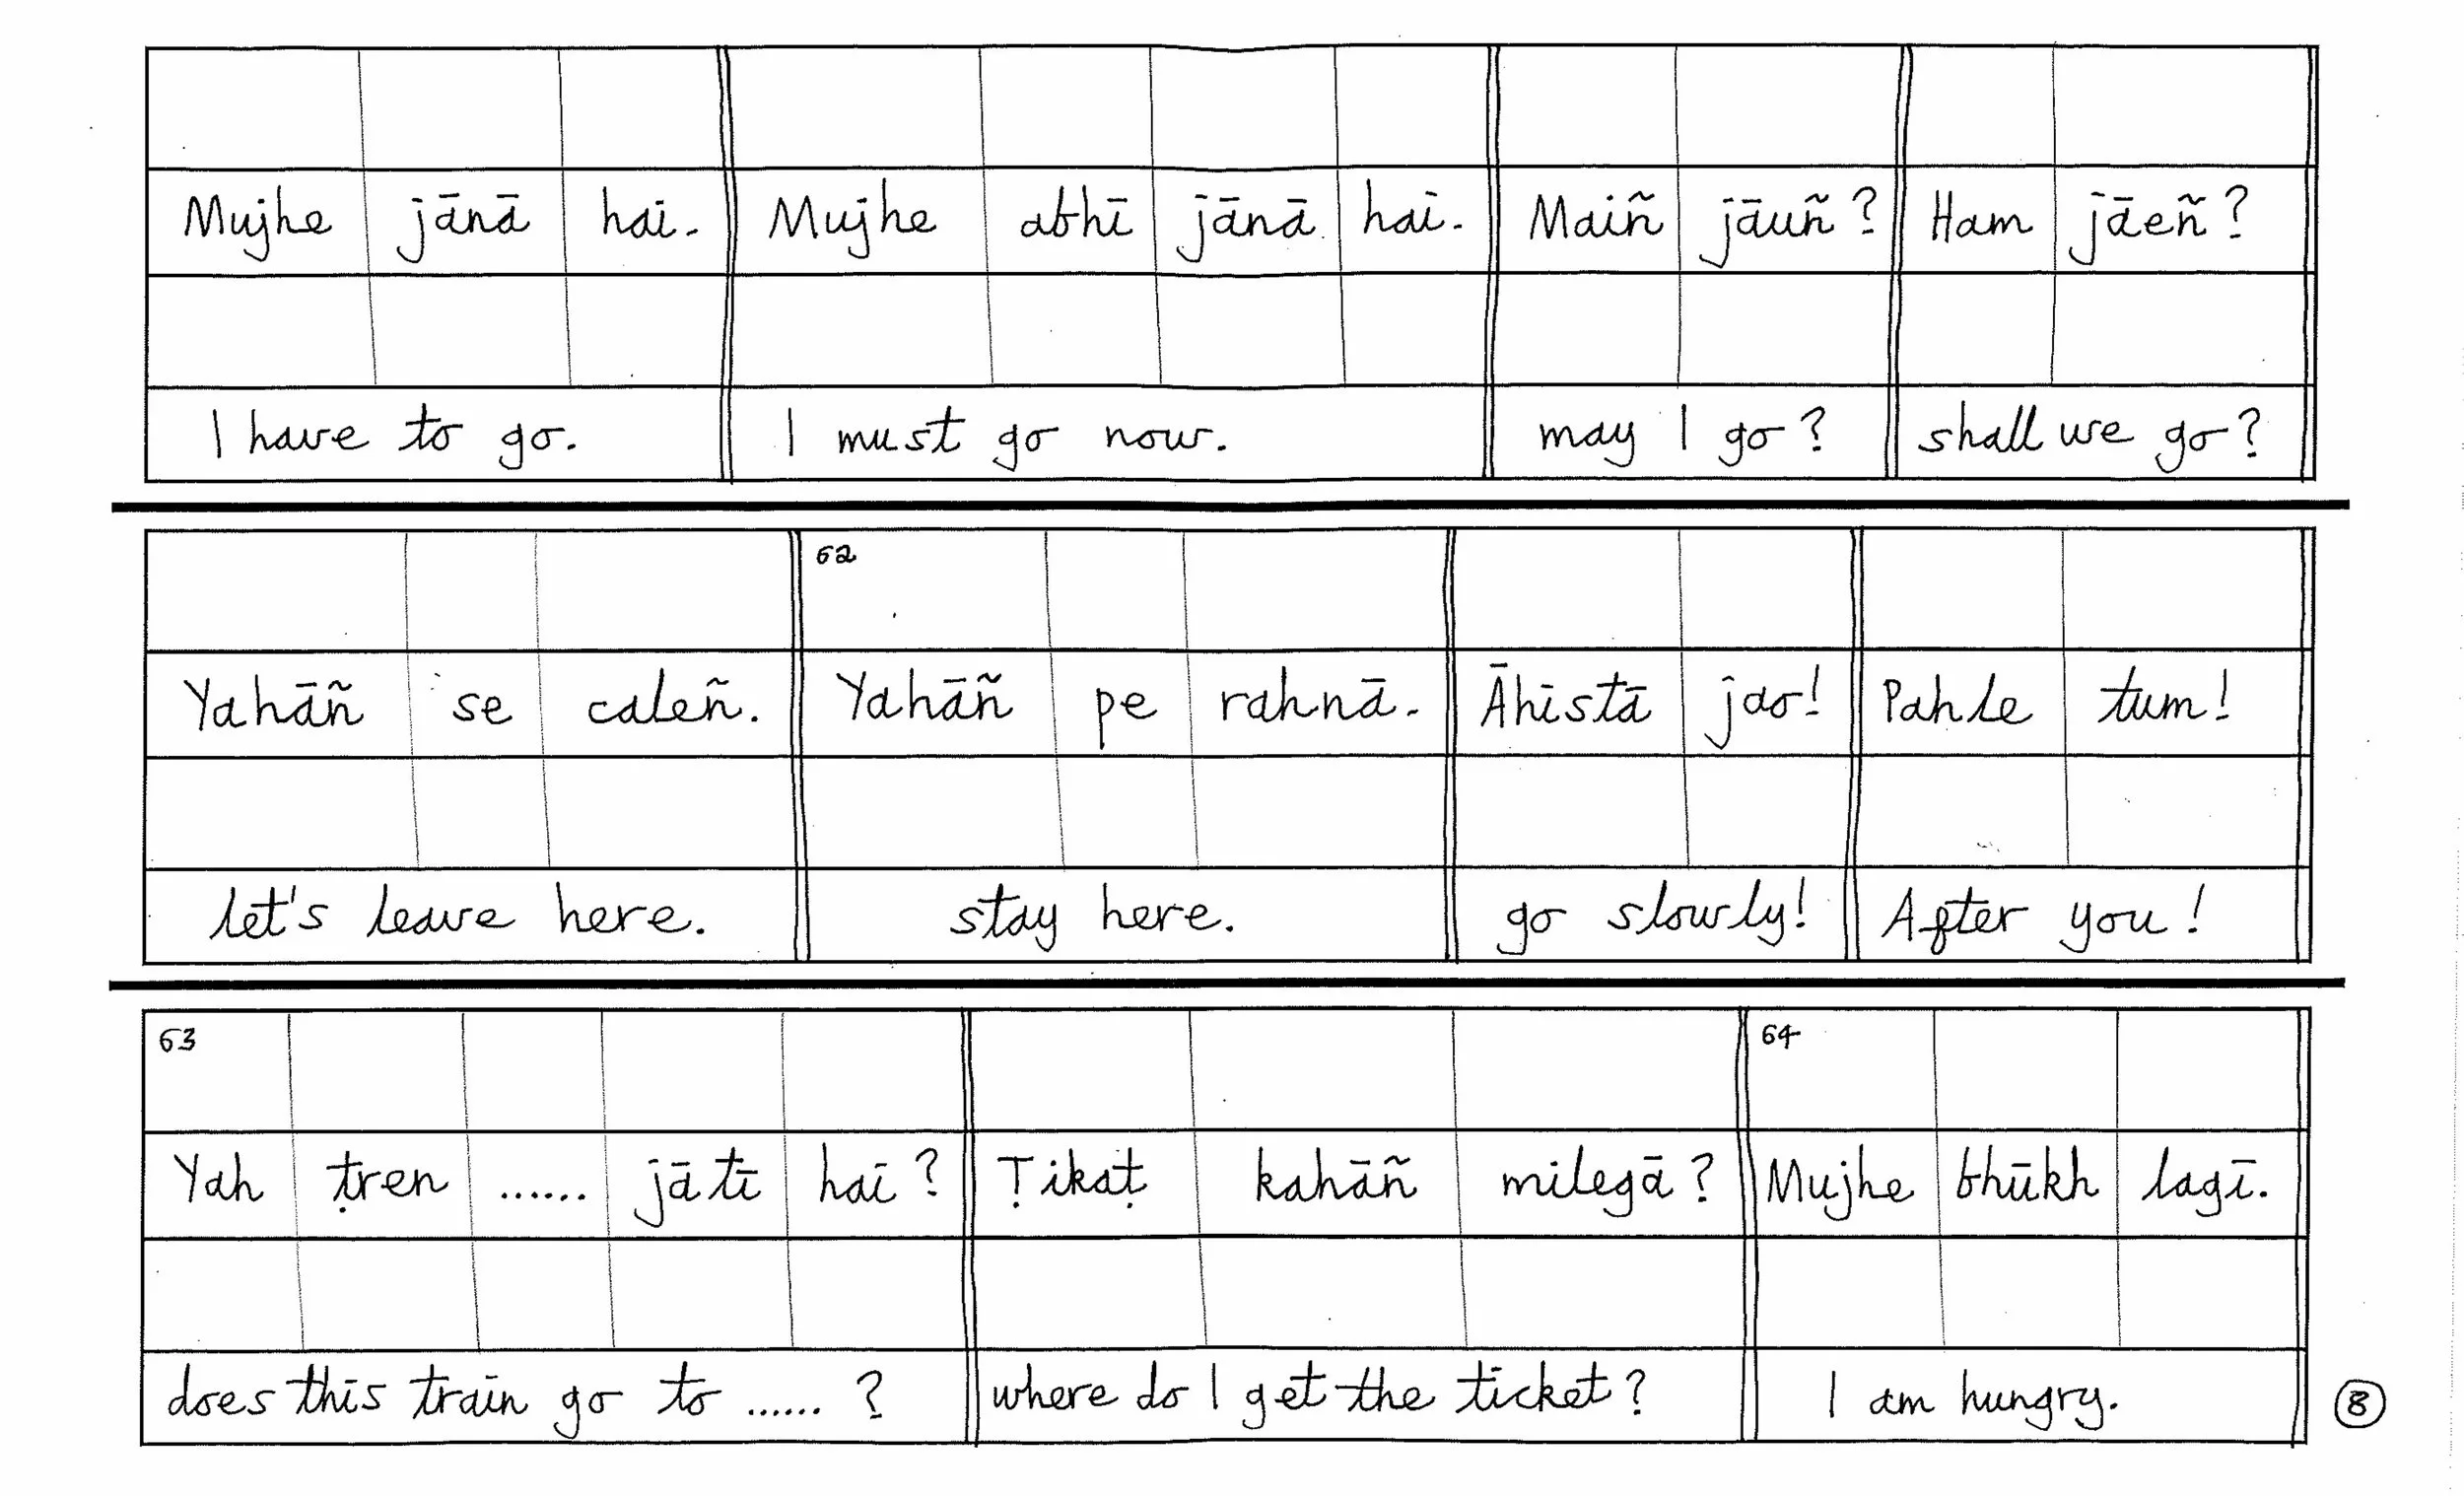 Mujhe jānā hai. Mujhe abhī jānā hai. Maiñ jāuñ? Ham jāeñ?
I have to go. I must go now. may I go? shall we go?
62
Yahāñ se caleñ. Yahāñ pe rahnā. Āhistā jao! Pahle tum!
let's leave here. stay here. go slowly! After you!
63 64
Yah ṭren ...... jātī hai? Ṭikaṭ kahāñ milegā? Mujhe bhūkh lagī.
does this train go to ......? where do I get the ticket? I am hungry.
8